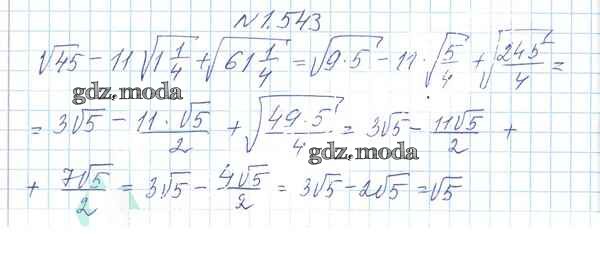 N1.543
√45 − 11√(1 1/4) + √(61 1/4) = √(9·5) − 11·√(5/4) + √(245/4) =
gdz.moda
= 3√5 − (11·√5)/2 + √((49·5)/4) = 3√5 − (11√5)/2 +
gdz.moda
+ (7√5)/2 = 3√5 − (4√5)/2 = 3√5 − 2√5 = √5